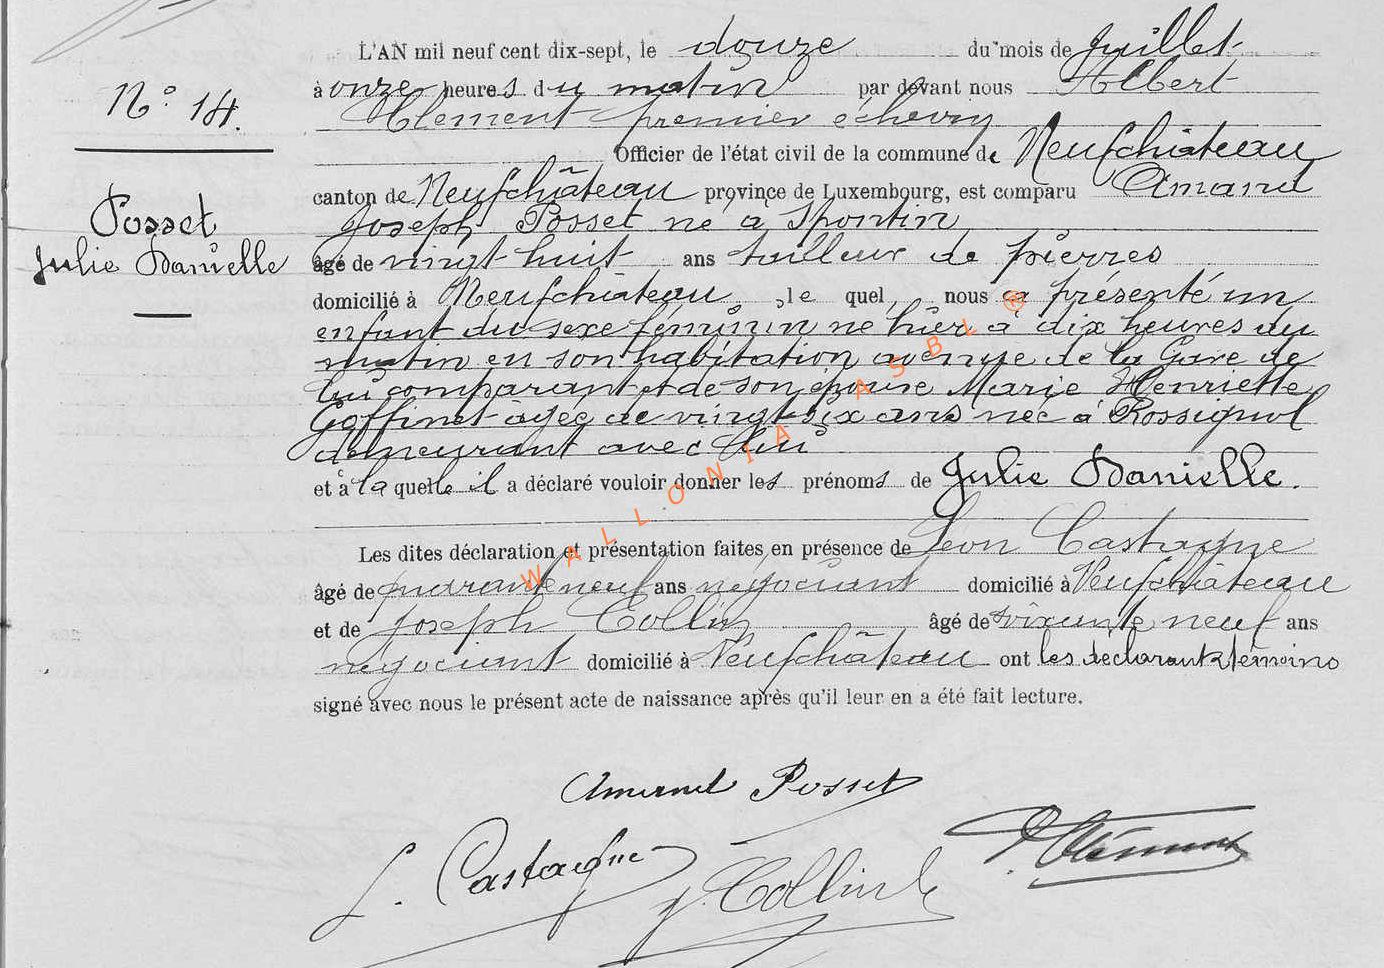 L'AN mil neuf cent dix-sept, le douze du mois de Juillet
à onze heures du matin par devant nous Albert
Clément premier échevin
Officier de l'état civil de la commune de Neufchâteau
canton de Neufchâteau province de Luxembourg, est comparu Amand
Joseph Posset né à Spontin
âgé de vingt huit ans tailleur de pierres
domicilié à Neufchâteau, lequel, nous a présenté un
enfant du sexe féminin né hier à dix heures du
matin en son habitation avenue de la Gare de
lui comparant et de son épouse Marie Henriette
Goffinet âgée de vingt six ans née à Rossignol
demeurant avec lui
et à laquelle il a déclaré vouloir donner les prénoms de Julie Danielle.
Les dites déclaration et présentation faites en présence de Léon Castagne
âgé de quarante neuf ans négociant domicilié à Neufchâteau
et de Joseph Collin âgé de soixante neuf ans
négociant domicilié à Neufchâteau ont les déclarant & témoins
signé avec nous le présent acte de naissance après qu'il leur en a été fait lecture.
N° 14.
Posset
Julie Danielle
Amand Posset
L. Castaigne
J. Collin
A. Clément
WALLONIA ASBL ®